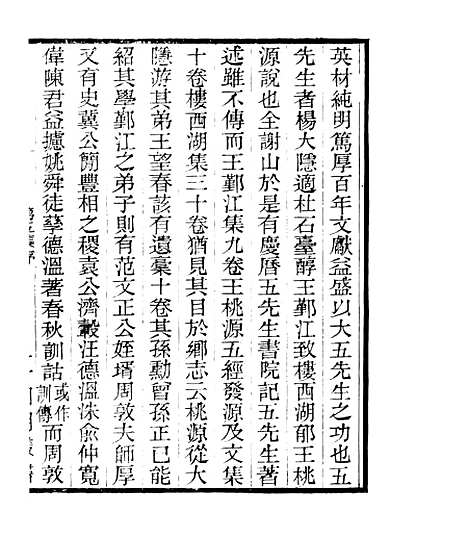 英材純明篤厚百年文獻益盛以大五先生之功也五
先生者楊大隱適杜石臺醇王鄞江致樓西湖郁王桃
源說也全謝山於是有慶曆五先生書院記五先生著
述雖不傳而王鄞江集九卷王桃源五經發源及文集
十卷樓西湖集三十卷猶見其目於鄉志云桃源從大
隱游其弟王望春該有遺稾十卷其孫勳曾孫正己能
紹其學鄞江之弟子則有范文正公姪壻周敦夫師厚
又有史冀公簡豐相之稷袁公濟轂汪德溫洙俞仲寬
偉陳君益攄姚舜徒孳德溫著春秋訓詁或作訓傳而周敦